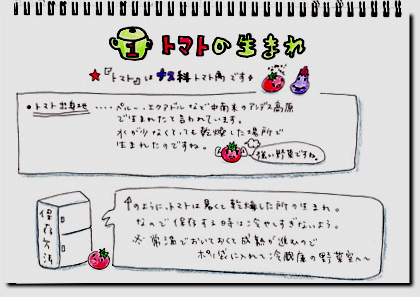 1 トマトの生まれ
★『トマト』はナス科トマト属です♪
•トマト出身地‥‥ペルー、エクアドルなど中南米のアンデス高原
で生まれたと言われています。
水が少なくとっても乾燥した場所で
生まれたのですね。
強い野菜ですね。
保存方法
↑のように、トマトは暑くて乾燥した所の生まれ。
なので保存する時は冷やしすぎないよう。
※常温でおいておくと成熟が進むので
ポリ袋に入れて冷蔵庫の野菜室へ〜